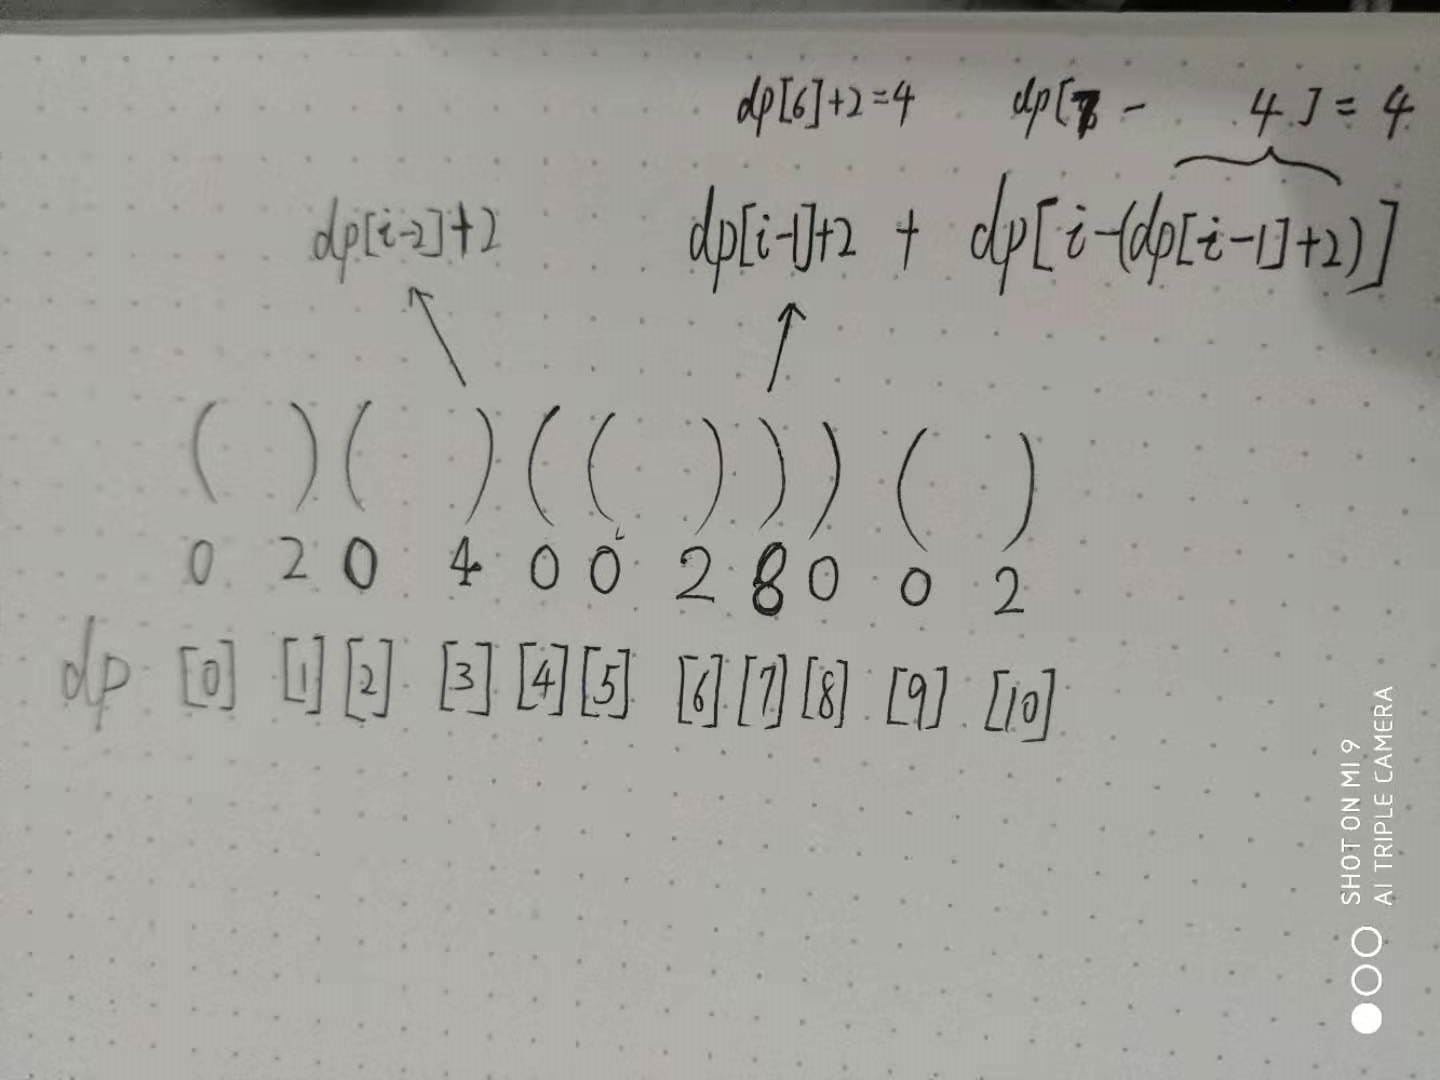 dp[6]+2=4 dp[7 - 4] = 4
dp[i-2]+2 dp[i-1]+2 + dp[i-(dp[i-1]+2)]
( ) ( ) ( ( ) ) ) ( )
0 2 0 4 0 0 2 8 0 0 2
dp [0] [1] [2] [3] [4] [5] [6] [7] [8] [9] [10]
SHOT ON MI 9
AI TRIPLE CAMERA